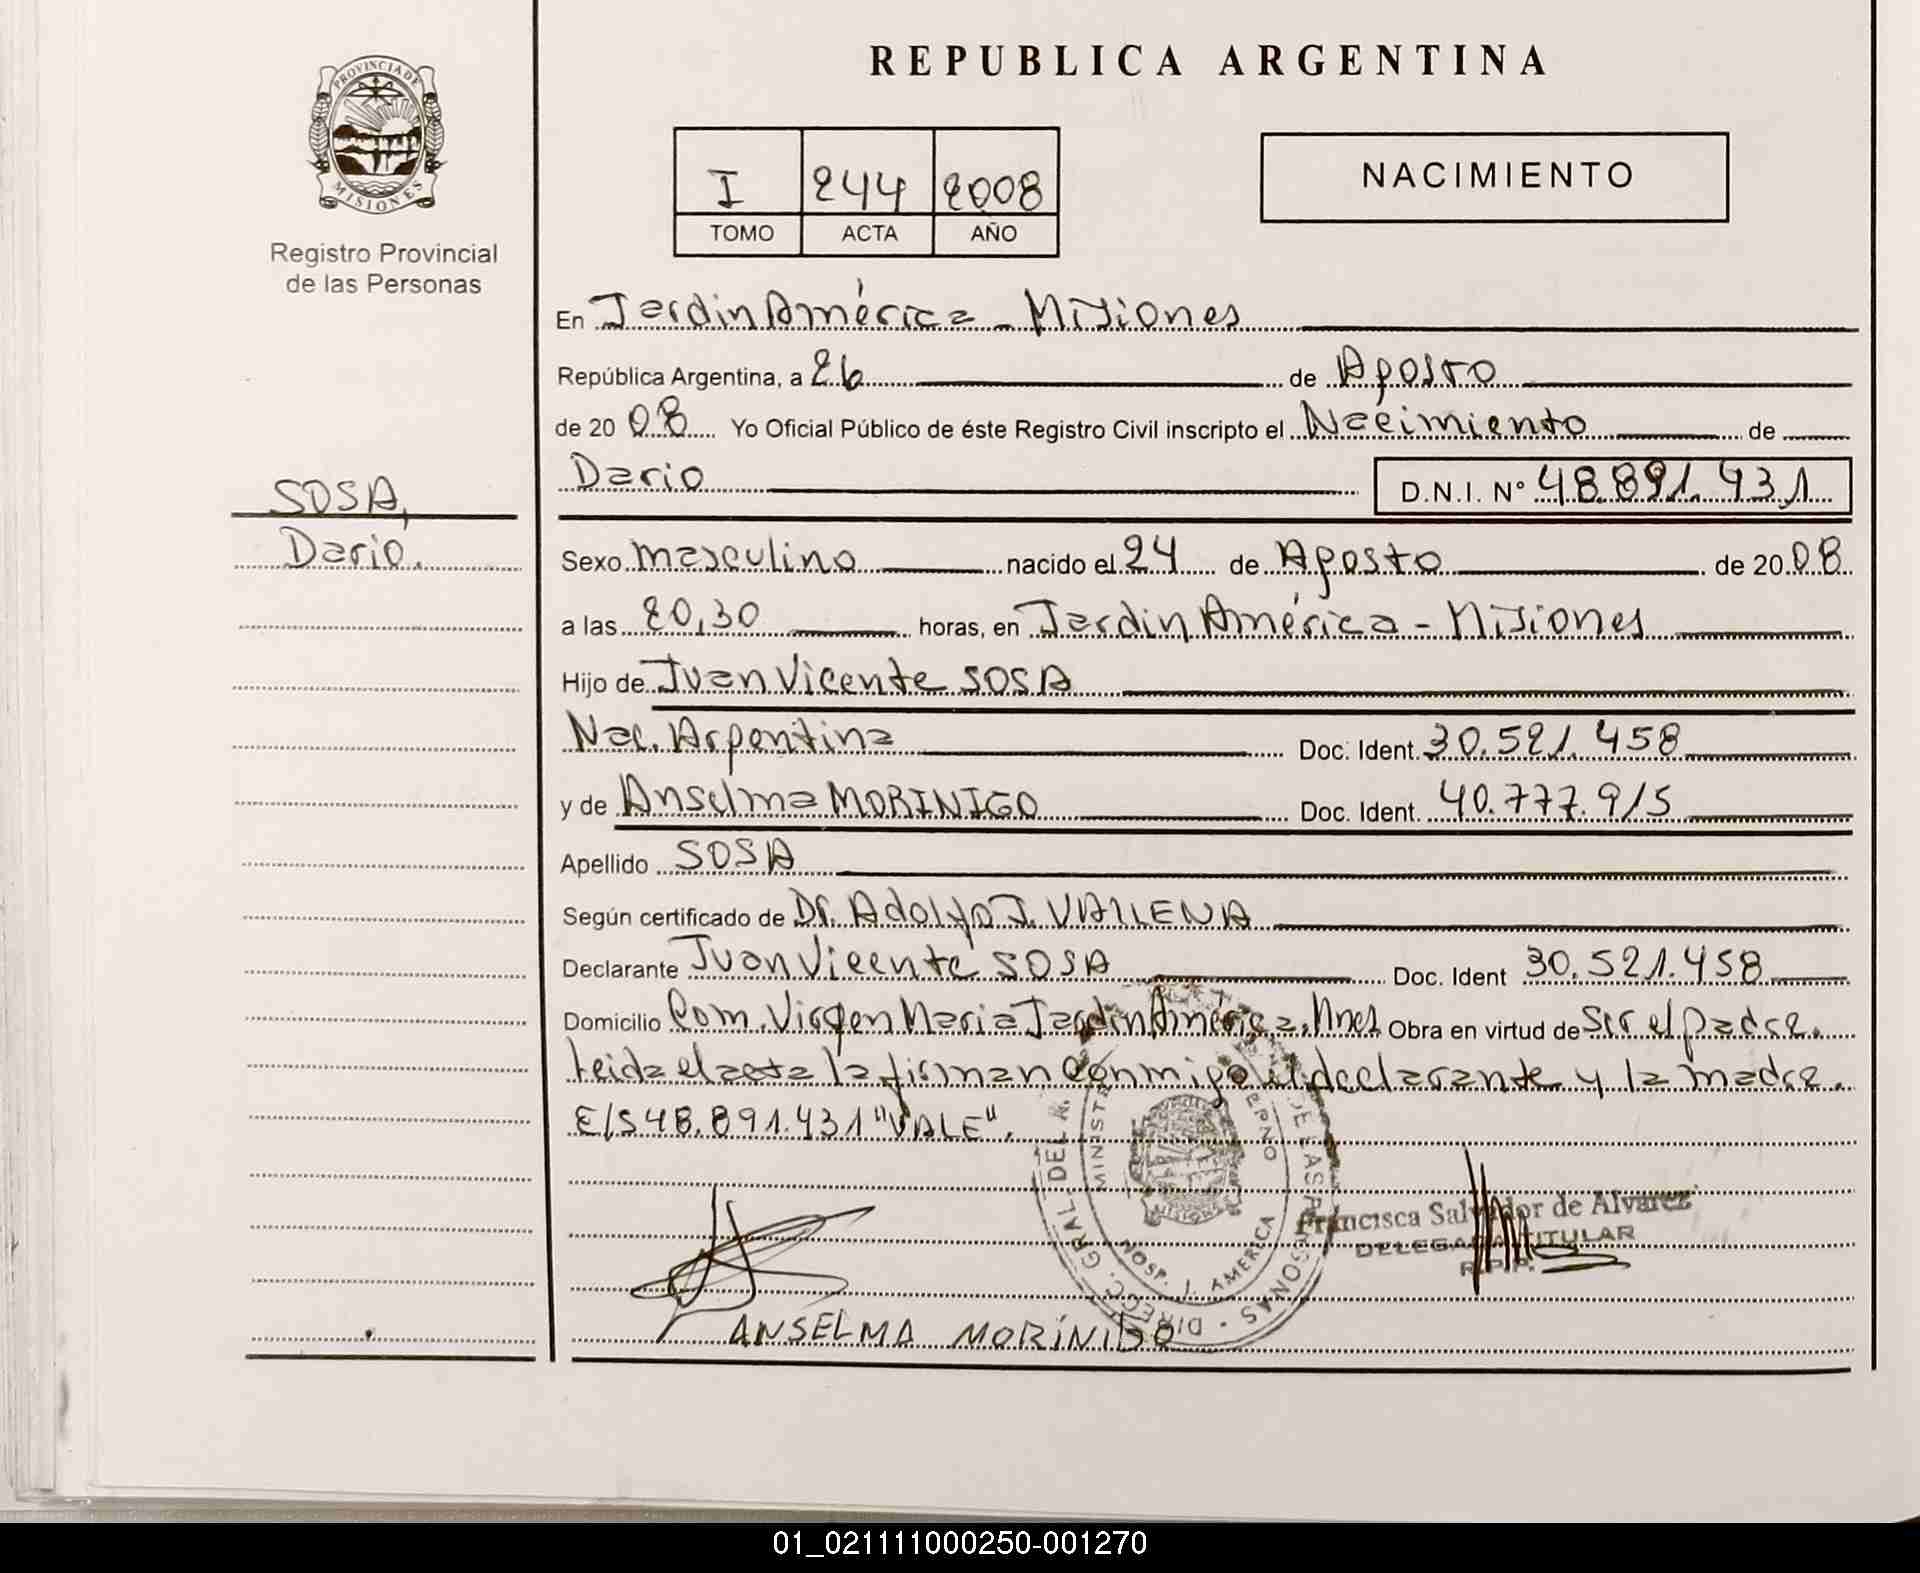 REPUBLICA ARGENTINA
PROVINCIA DE
MISIONES
Registro Provincial
de las Personas
I 244 2008
TOMO ACTA AÑO
NACIMIENTO
En Jardin América - Misiones
República Argentina, a 26 de Agosto
de 20 08 Yo Oficial Público de éste Registro Civil inscripto el Nacimiento de
Dario D.N.I. Nº 48.891.431
SOSA,
Dario.
Sexo masculino nacido el 24 de Agosto de 20 08
a las 20,30 horas, en Jardin América - Misiones
Hijo de Juan Vicente SOSA
Nac. Argentina Doc. Ident. 30.521.458
y de Anselma MORINIGO Doc. Ident. 40.777.915
Apellido SOSA
Según certificado de Dr. Adolfo J. VALLENA
Declarante Juan Vicente SOSA Doc. Ident 30.521.458
Domicilio Com. Virgen Maria Jardin América. Mnes Obra en virtud de ser el padre.
Leida el acta la firman conmigo el declarante y la madre.
E/S 48.891.431 "VALE".
Francisca Salvador de Alvarez
DELEGADA TITULAR
R.P.P.
DIRECC. GRAL. DEL R. DE LAS PERSONAS
HOSP. J. AMERICA
MISIONES
ANSELMA MORÍNIGO
01_021111000250-001270